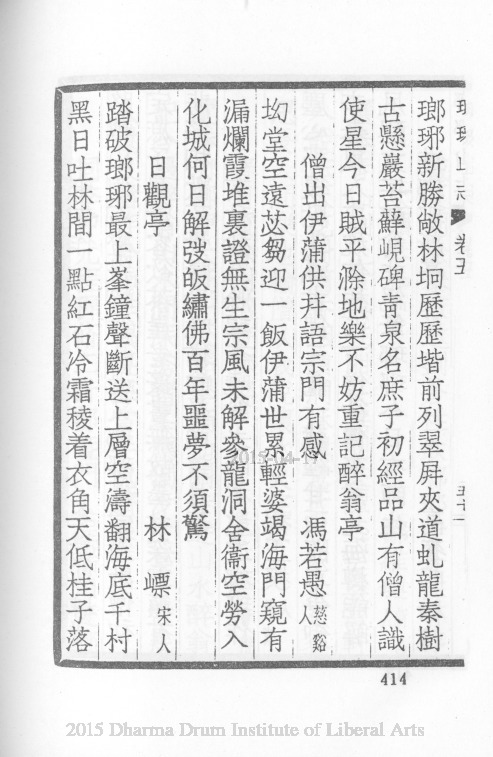 琅琊山志 卷五
瑯琊新勝敞林坰歷歷堦前列翠屛夾道虬龍秦樹
古懸巖苔蘚峴碑靑泉名庶子初經品山有僧人識
使星今日賊平滁地樂不妨重記醉翁亭
僧出伊蒲供幷語宗門有感 馮若愚慈谿人
坳堂空遠苾芻迎一飯伊蒲世累輕婆竭海門窺有
漏爛霞堆裏證無生宗風未解參龍洞舍衞空勞入
化城何日解弢皈繡佛百年噩夢不須驚
日觀亭 林㟽宋人
踏破瑯琊最上峯鐘聲斷送上層空濤翻海底千村
黑日吐林間一點紅石冷霜稜着衣角天低桂子落
414
2015-04-17
2015 Dharma Drum Institute of Liberal Arts